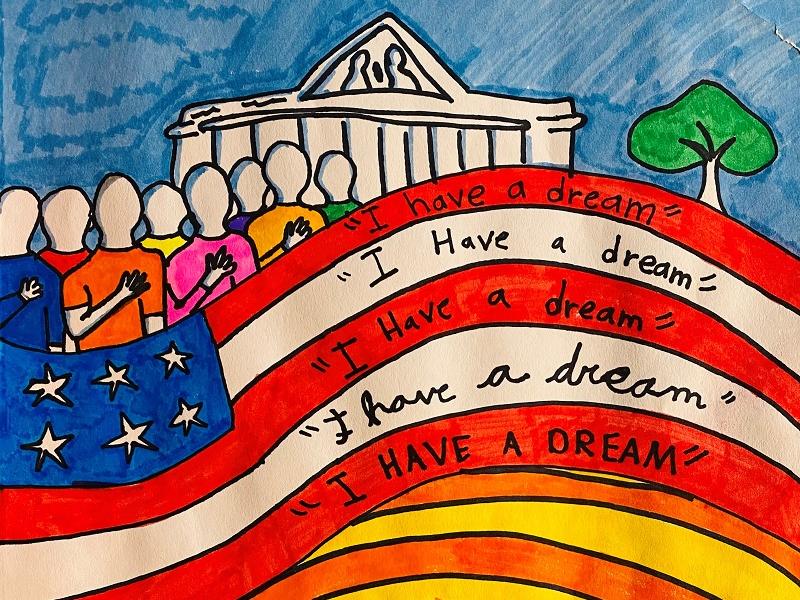 "I have a dream"
"I Have a dream"
"I Have a dream"
"I have a dream"
"I HAVE A DREAM"